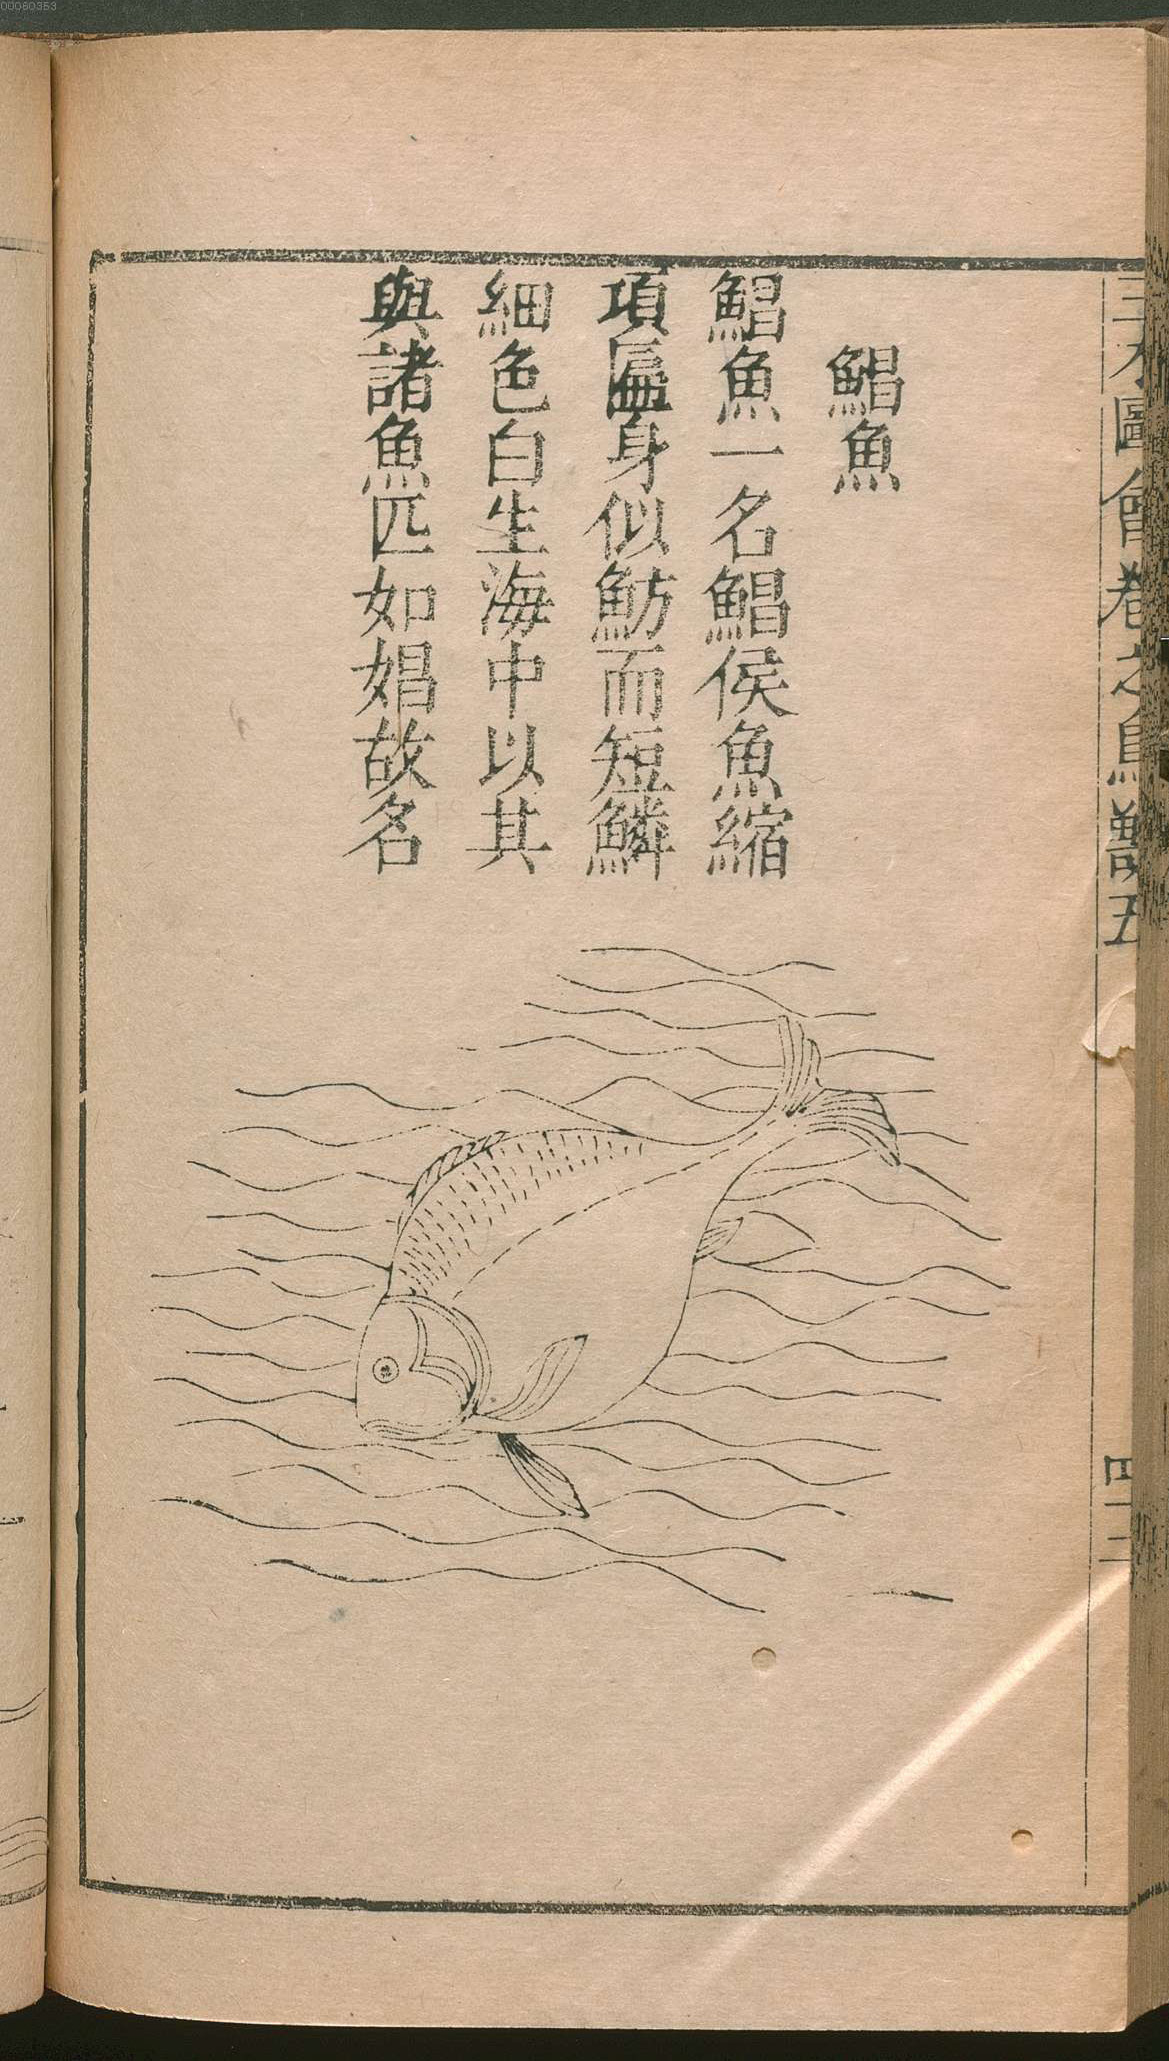 00060353
三才圖會卷之鳥獸五
四十三
鯧魚
鯧魚一名鯧侯魚縮
項匾身似魴而短鱗
細色白生海中以其
與諸魚匹如娼故名